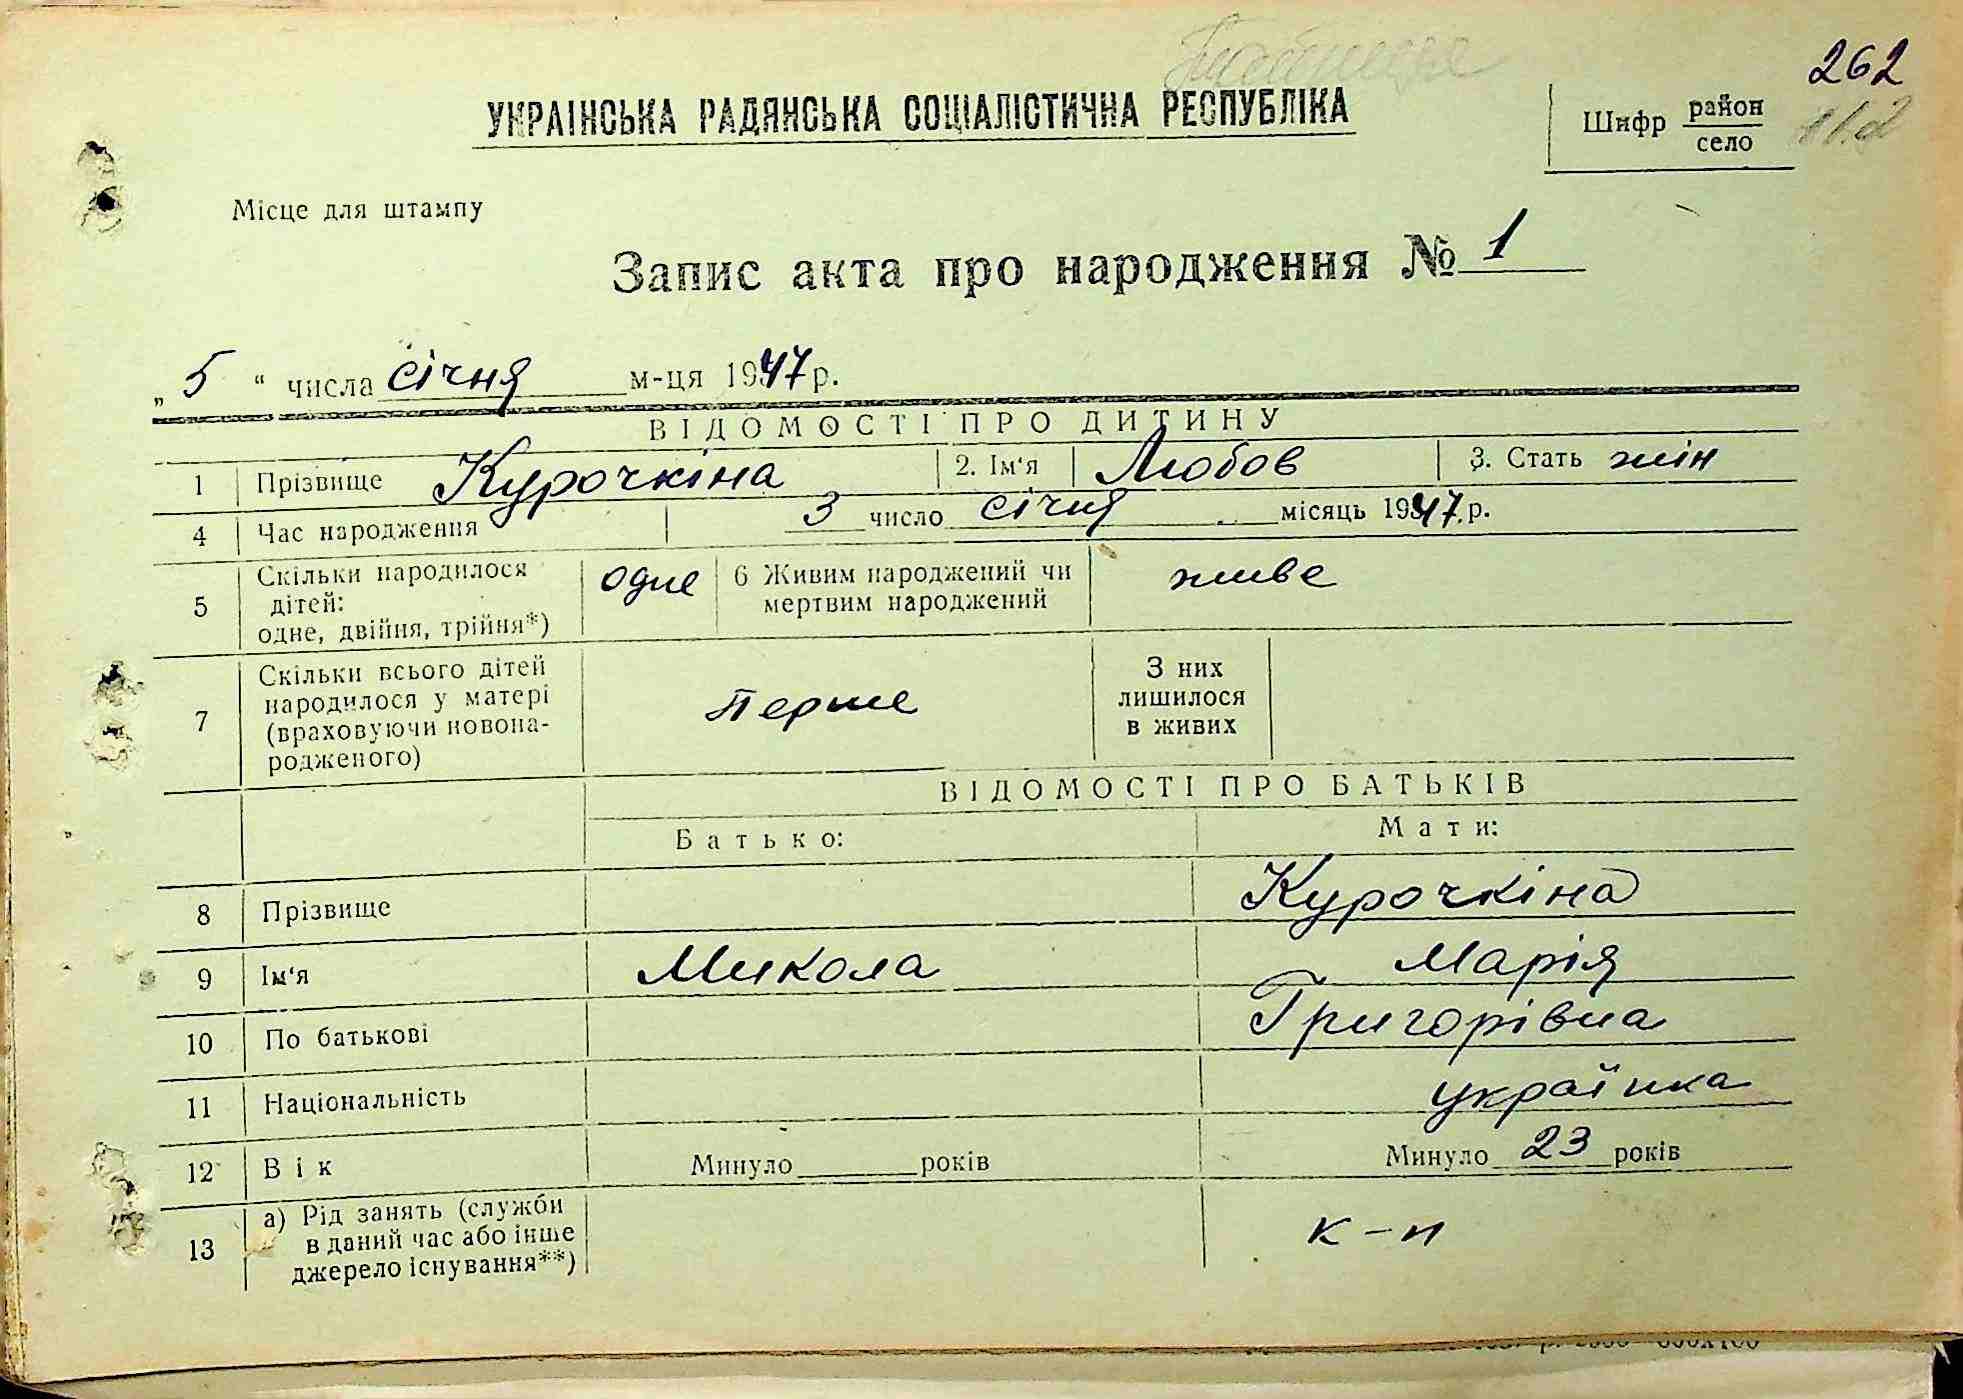 262
УКРАЇНСЬКА РАДЯНСЬКА СОЦІАЛІСТИЧНА РЕСПУБЛІКА
Шифр район
село
Місце для штампу
Запис акта про народження № 1
„ 5 “ числа січня м-ця 1947 р.
ВІДОМОСТІ ПРО ДИТИНУ
1 Прізвище Курочкіна 2. Ім'я Любов 3. Стать жін
4 Час народження 3 число січня місяць 1947 р.
5 Скільки народилося дітей: одне, двійня, трійня*) одне 6 Живим народжений чи мертвим народжений живе
7 Скільки всього дітей народилося у матері (враховуючи новонародженого) перше З них лишилося в живих
ВІДОМОСТІ ПРО БАТЬКІВ
Батько: Мати:
8 Прізвище Курочкіна
9 Ім'я Микола Марія
10 По батькові Григорівна
11 Національність українка
12 Вік Минуло років Минуло 23 років
13 а) Рід занять (служби в даний час або інше джерело існування**) к-п